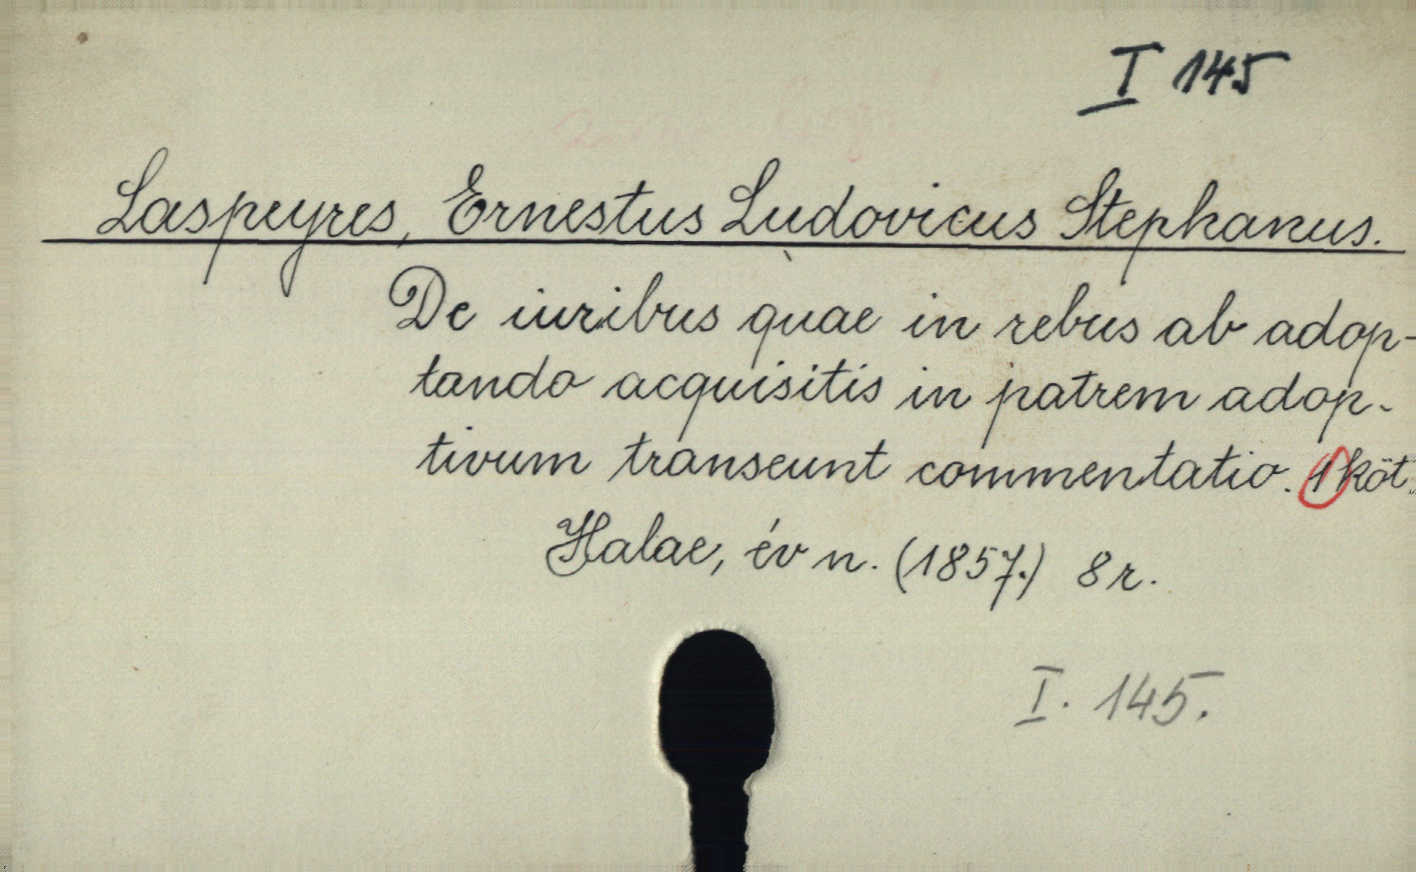 I 145
Laspeyres, Ernestus Ludovicus Stephanus.
De iuribus quae in rebus ab adop-
tando acquisitis in patrem adop-
tivum transeunt commentatio. 1 köt.
Halae, év n. (1857.) 8 r.
I. 145.